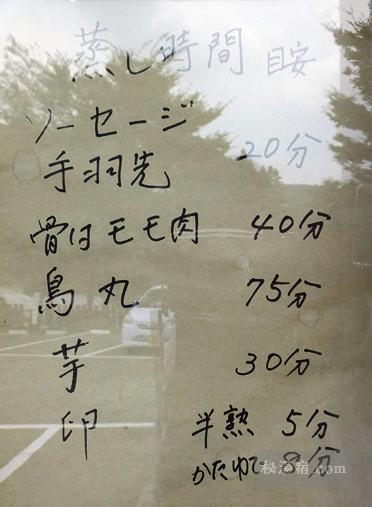 蒸し時間 目安
ソーセージ
手羽先 20分
骨付モモ肉 40分
鳥丸 75分
芋 30分
卵 半熟 5分
かたゆで 8分
秘湯宿.com